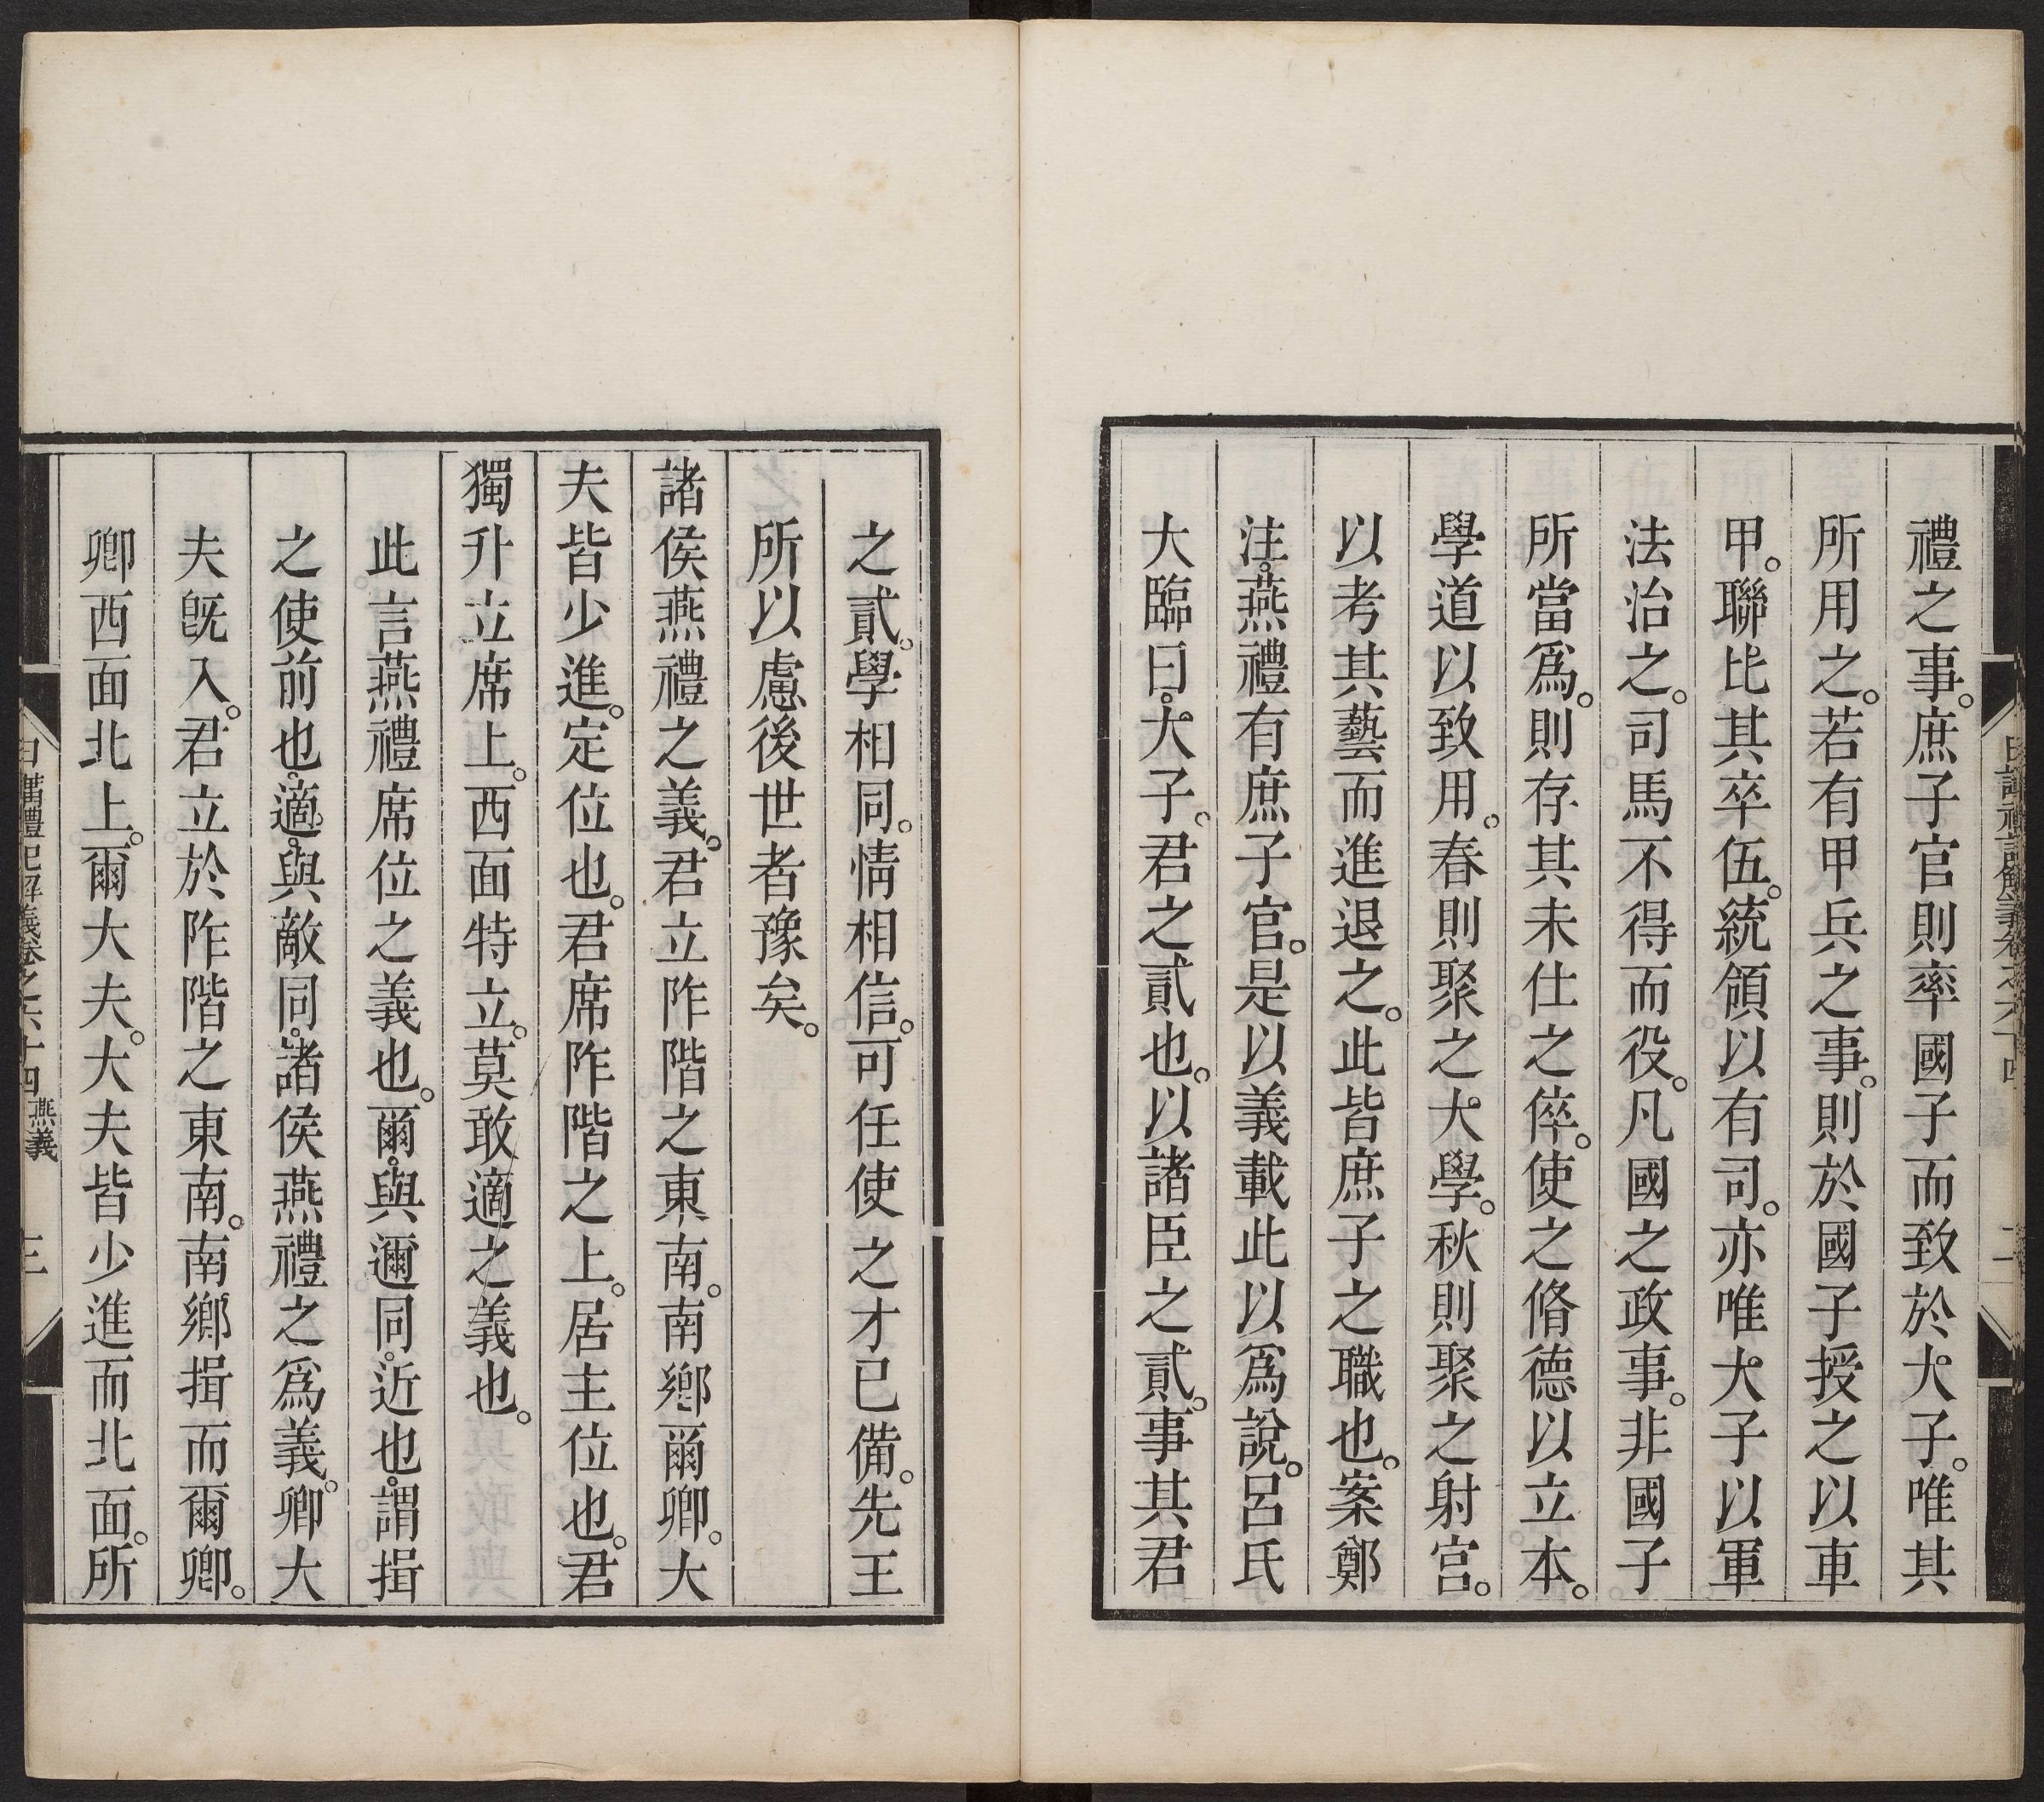 禮之事。庶子官則率國子而致於大子。唯其
所用之。若有甲兵之事。則於國子授之以車
甲。聯比其卒伍。統領以有司。亦唯大子以軍
法治之。司馬不得而役。凡國之政事。非國子
所當爲。則存其未仕之倅。使之脩德以立本。
學道以致用。春則聚之大學。秋則聚之射宮。
以考其藝而進退之。此皆庶子之職也。案鄭
注。燕禮有庶子官。是以義載此以爲說。呂氏
大臨曰。大子。君之貳也。以諸臣之貳。事其君
之貳。學相同。情相信。可任使之才已備。先王
所以慮後世者豫矣。
諸侯燕禮之義。君立阼階之東南。南鄉爾卿。大
夫皆少進。定位也。君席阼階之上。居主位也。君
獨升立席上。西面特立。莫敢適之義也。
此言燕禮席位之義也。爾。與邇同。近也。謂揖
之使前也。適。與敵同。諸侯燕禮之爲義。卿大
夫旣入。君立於阼階之東南。南鄉揖而爾卿。
卿西面北上。爾大夫。大夫皆少進而北面。所
日講禮記解義卷之六十四 燕義 三